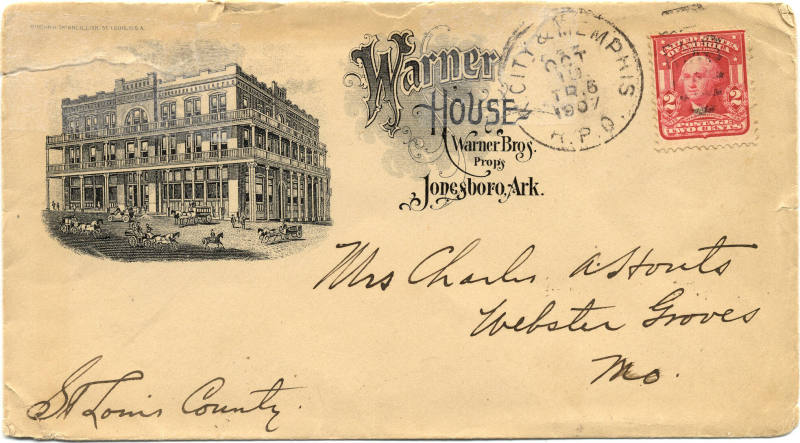 ST. LOUIS, U.S.A.
Warner
HOUSE
Warner Bros.
Props
Jonesboro, Ark.
CITY & MEMPHIS
OCT
TR. 6
1907
R.P.O.
UNITED STATES
OF AMERICA
2 2
POSTAGE
TWO CENTS
Mrs Charles A Houts
Webster Groves
Mo.
St Louis County.